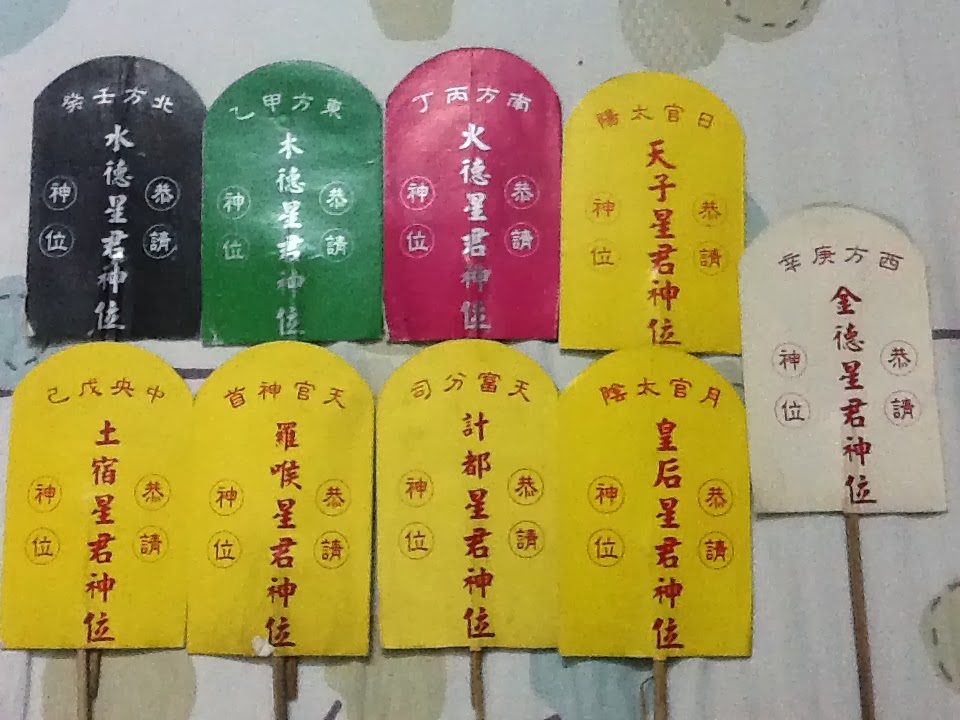 北方壬癸
水德星君神位
恭請
神位
東方甲乙
木德星君神位
恭請
神位
南方丙丁
火德星君神位
恭請
神位
日官太陽
天子星君神位
恭請
神位
西方庚辛
金德星君神位
恭請
神位
中央戊己
土宿星君神位
恭請
神位
天官神首
羅喉星君神位
恭請
神位
天富分司
計都星君神位
恭請
神位
月官太陰
皇后星君神位
恭請
神位